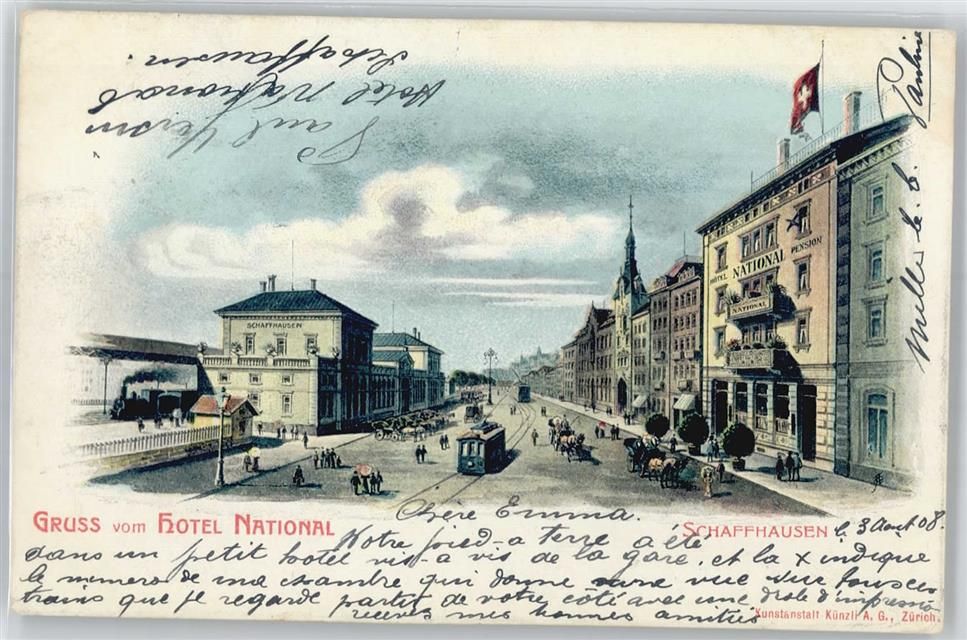 Schaffhausen.
Hotel National
Paul
Pauline
Milles b. b.
SCHAFFHAUSEN
HÔTEL NATIONAL PENSION
NATIONAL
GRUSS vom HOTEL NATIONAL
SCHAFFHAUSEN
Chère Emma.
le 3 Août 08.
Notre pied-à terre a été
dans un petit hotel vis-à vis de la gare, et la x indique
le numero de ma chambre qui donne vue sur tous ces
trains que je regarde partir de votre côté avec une drôle d'impression
recevez mes bonnes amitiés
Kunstanstalt Künzli A. G., Zürich.